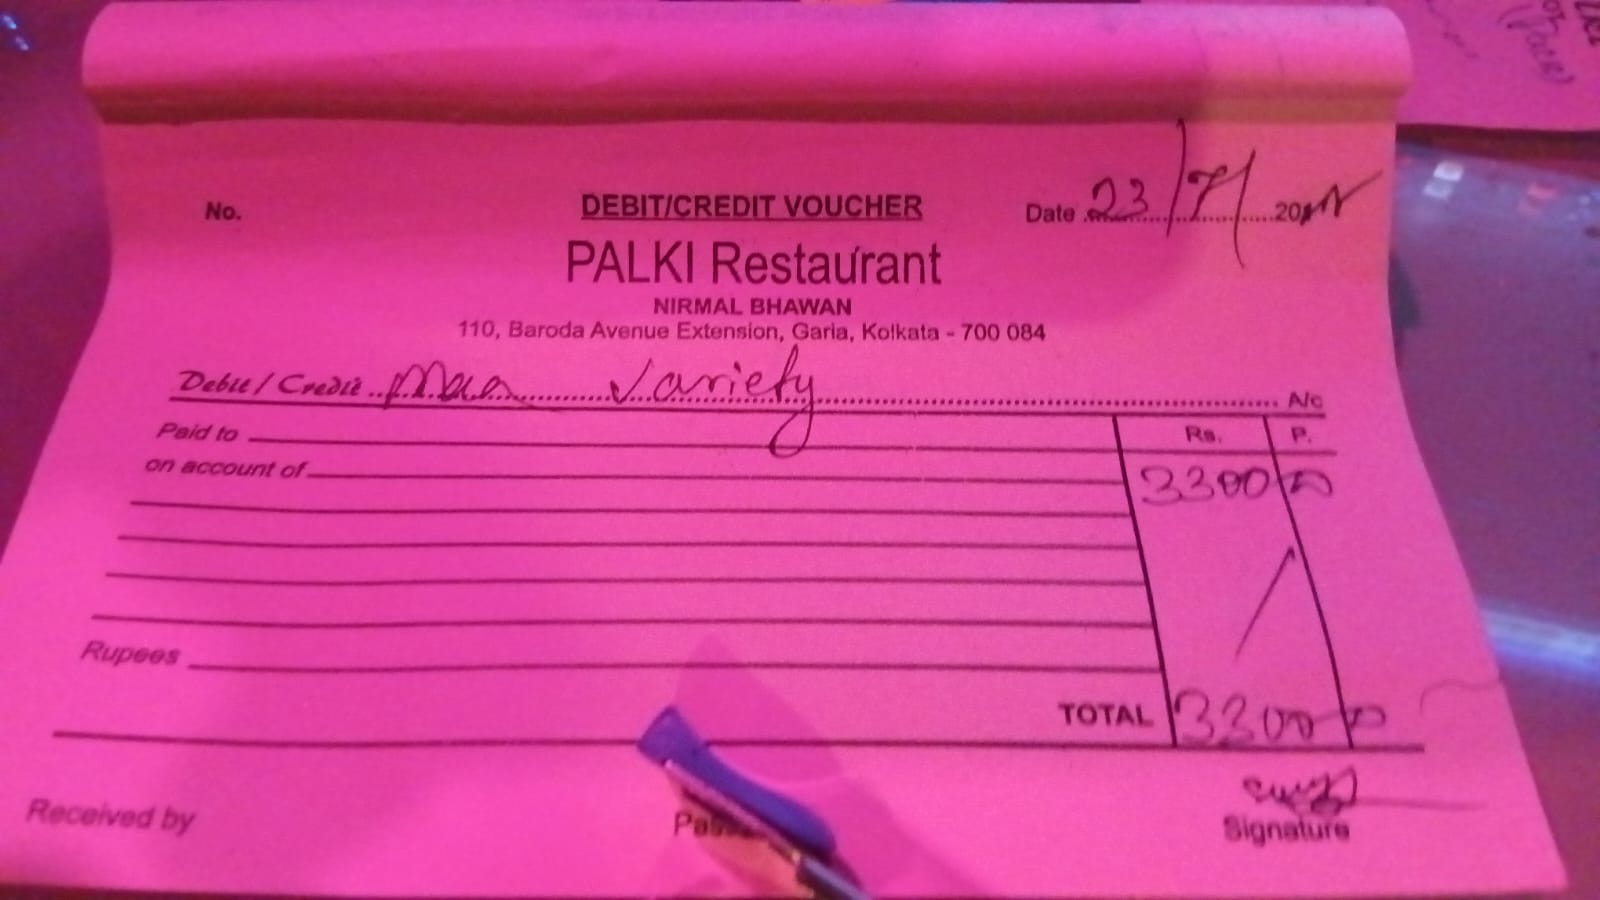 No.
DEBIT/CREDIT VOUCHER
Date 23/7/20
PALKI Restaurant
NIRMAL BHAWAN
110, Baroda Avenue Extension, Garia, Kolkata - 700 084
Debit / Credit Maa Variety A/c
Paid to
Rs. P.
on account of
3300
Rupees
TOTAL 3300
Received by
Signature